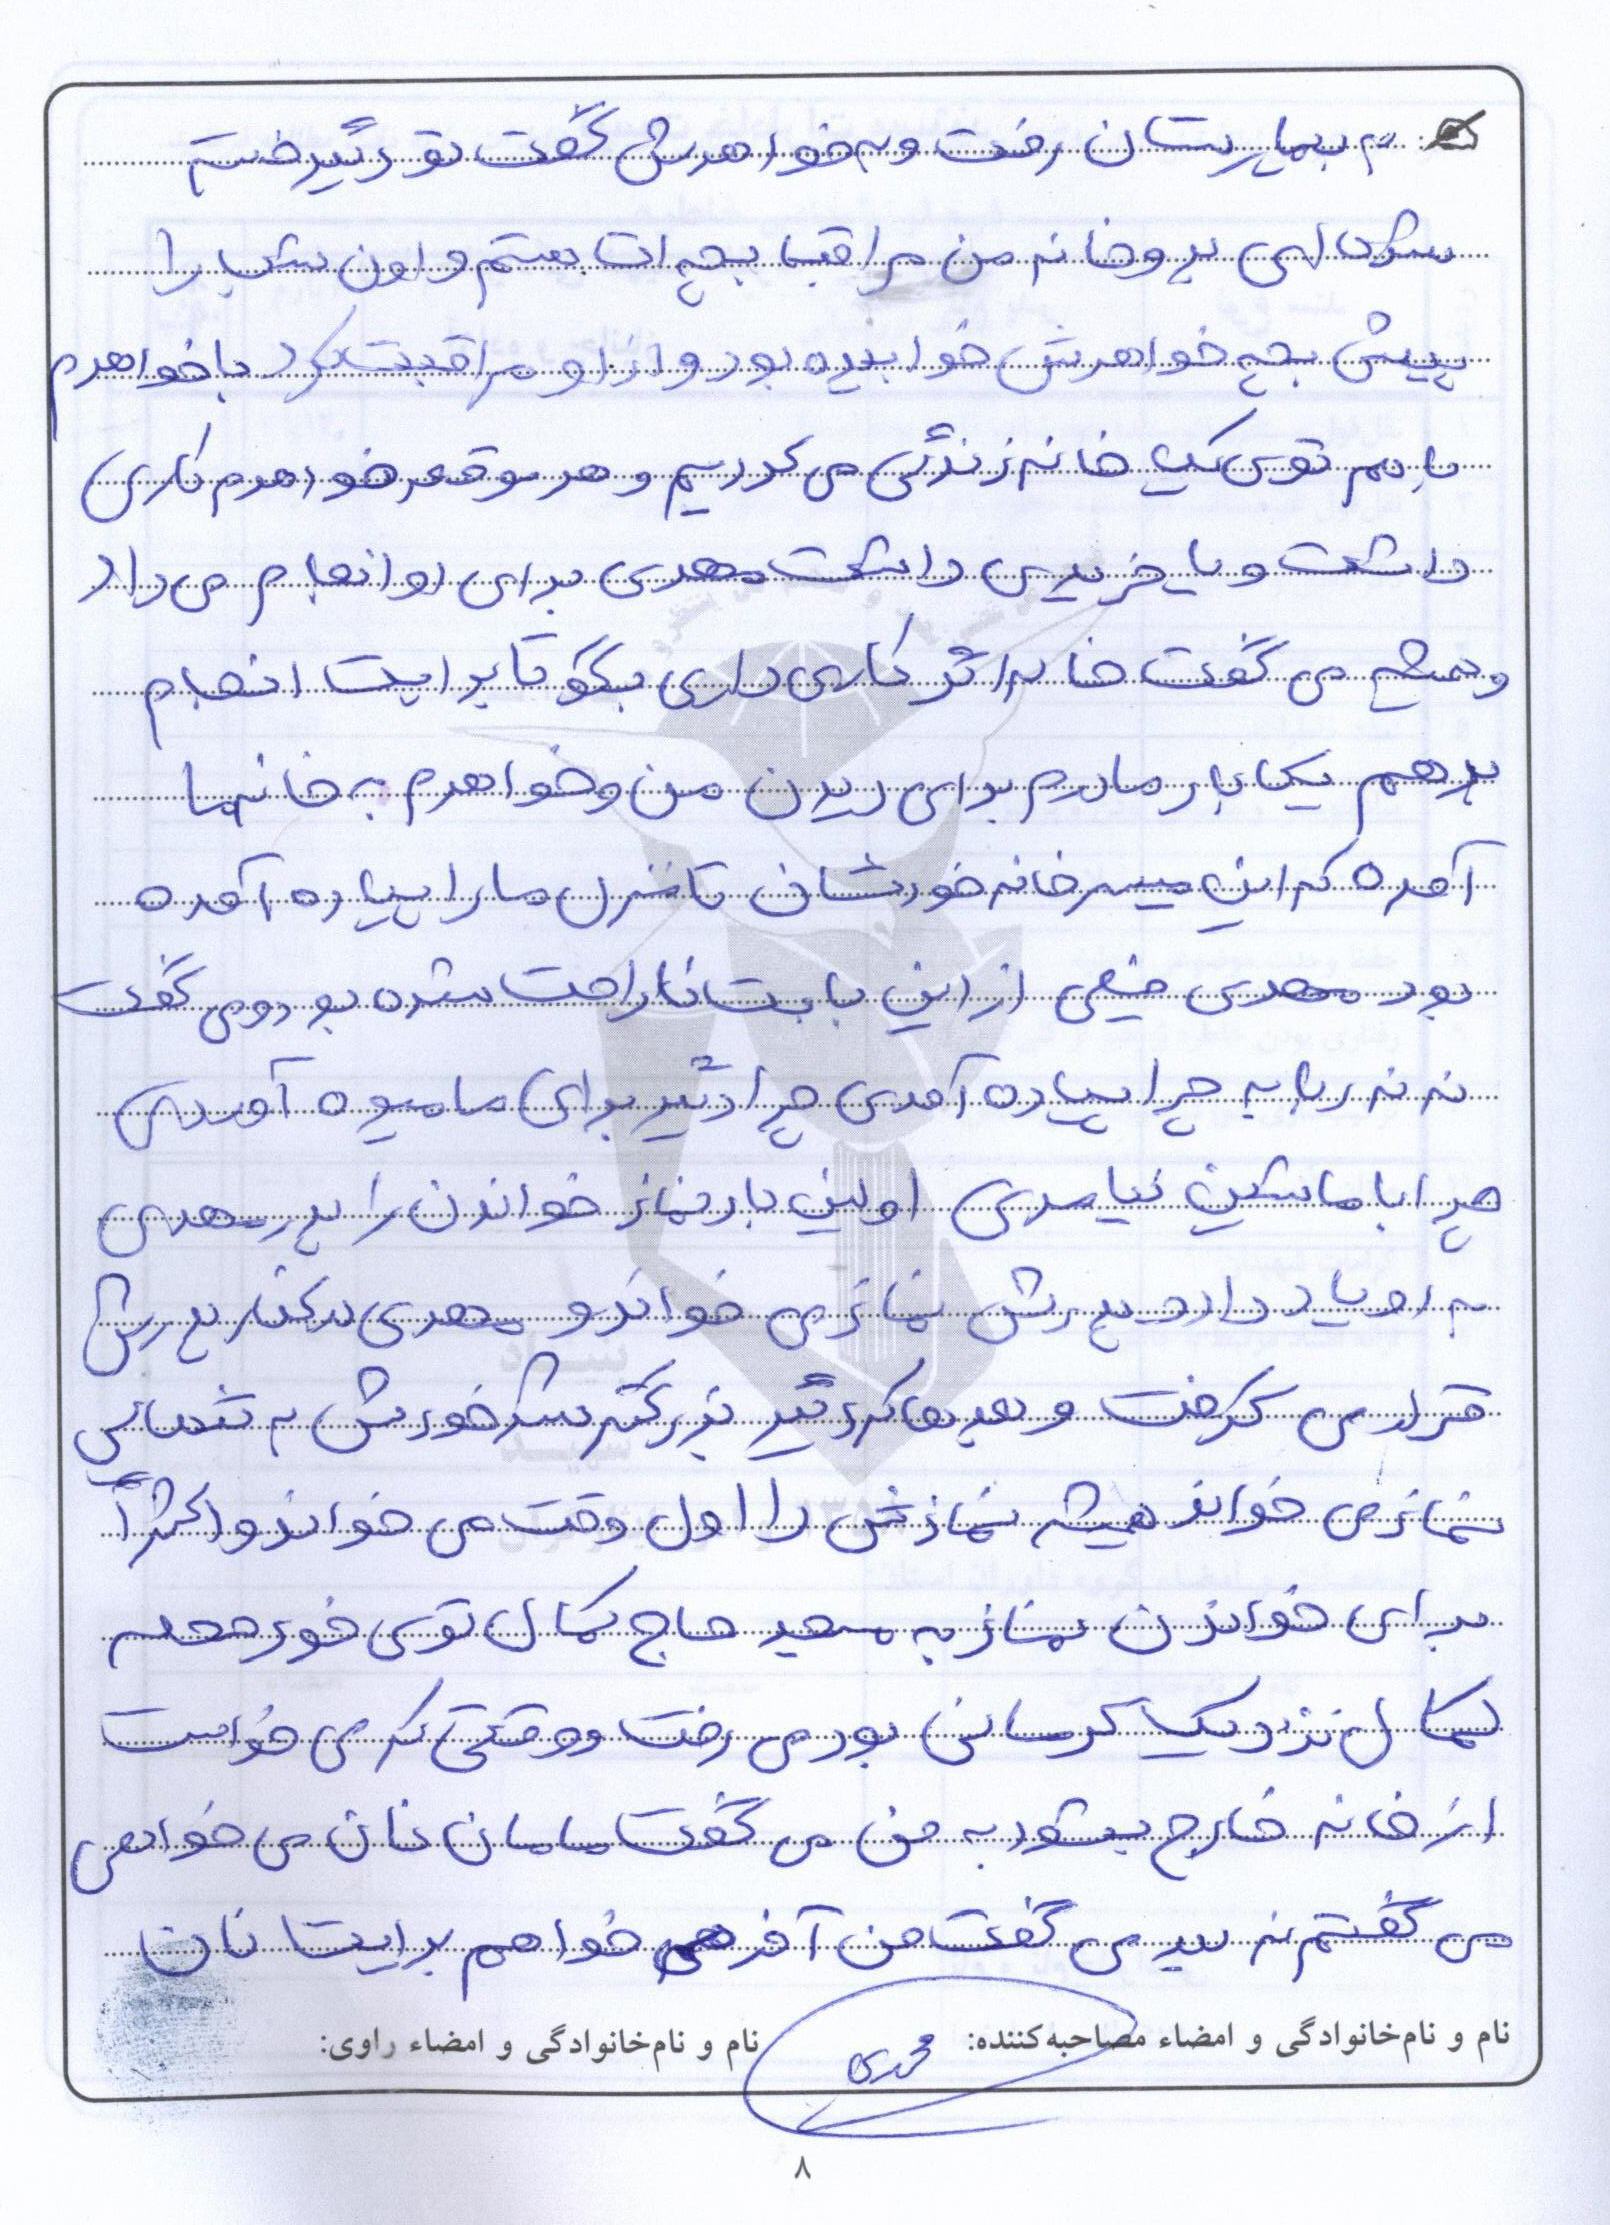 به بیمارستان رفت و به خواهرش گفت تو دیگر خسته
شده ای برو خانه من مراقب بچه ات هستم و اون شب را
پیش بچه خواهرش خوابیده بود و از او مراقبت کرد با خواهرم
با هم توی یک خانه زندگی می کردیم و هر موقعه خواهرم کاری
داشت و یا خریدی داشت مهدی برای او انجام می داد
و همیشه می گفت خاله اگر کاری داری بگو تا برایت انجام
بدهم یکبار مادرم برای دیدن من و خواهرم به خانه ما
آمده که این مسیر خانه خودشان تا منزل ما را پیاده آمده
بود مهدی خیلی از این بابت ناراحت شده بود و می گفت
ننه ربابه چرا پیاده آمدی چرا دیگر برای ما میوه آوردی
چرا با ماشین نیامدی اولین بار نماز خواندن را پدر مهدی
به او یاد داد پدرش نماز می خواند و مهدی در کنار پدرش
قرار می گرفت و بعدها که دیگر بزرگتر شد خودش به تنهایی
نماز می خواند همیشه نمازش را اول وقت می خواند و اکثراً
برای خواندن نماز به مسجد حاج کمال توی خود محله
کمال نزدیک کرمانی بود می رفت و وقتی که می خواست
از خانه خارج بشود به من می گفت مامان نان می خواهی
می گفتم نه بعد می گفت من آخر می خواهم برایت نان
نام و نام‌خانوادگی و امضاء مصاحبه‌کننده: محمدی
نام و نام‌خانوادگی و امضاء راوی:
۸